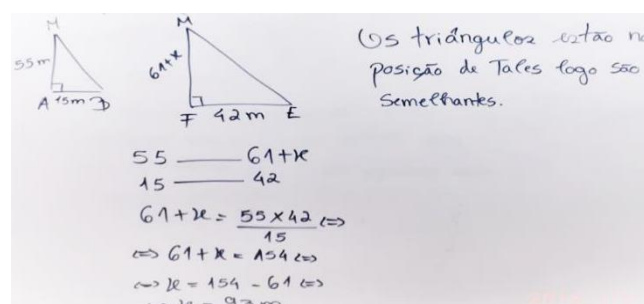 M
55m
A 15m D
M
61+x
F 42m E
Os triângulos estão na
posição de Tales logo são
semelhantes.
55 —— 61+x
15 —— 42
61+x = 55×42/15 <=>
<=> 61+x = 154 <=>
<=> x = 154 - 61 <=>
x = 93 m